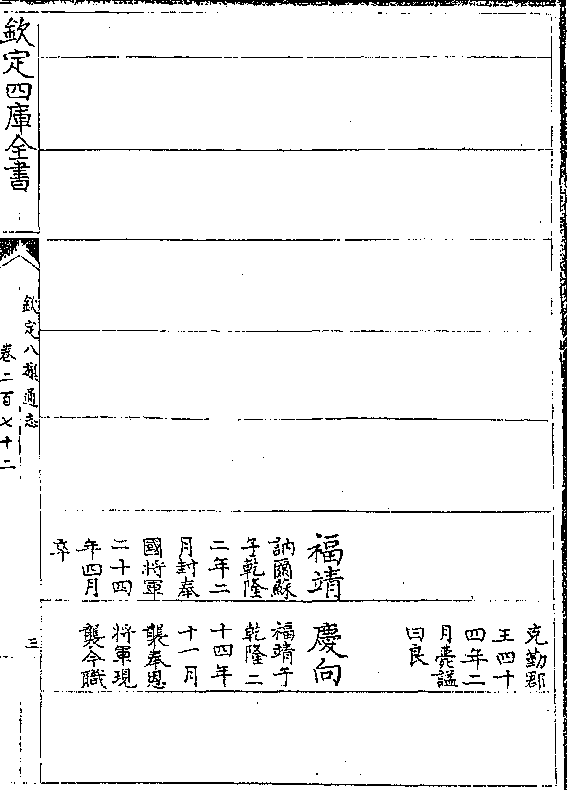 克勤郡
王四十
四年二
月薨諡
曰良
福靖
訥爾蘇
子乾隆
二年二
月封奉
國將軍
二十四
年四月
卒
慶向
福靖子
乾隆二
十四年
十一月
襲奉恩
將軍現
襲今職
欽定四庫全書
欽定八旗通志
卷二百七十二
三